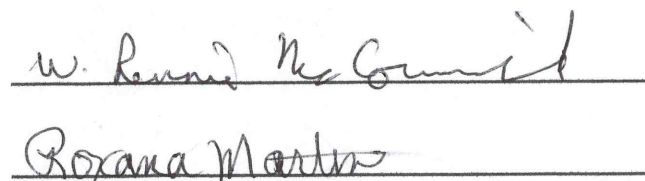 W. Ronnie McCormick
Roxana Martin